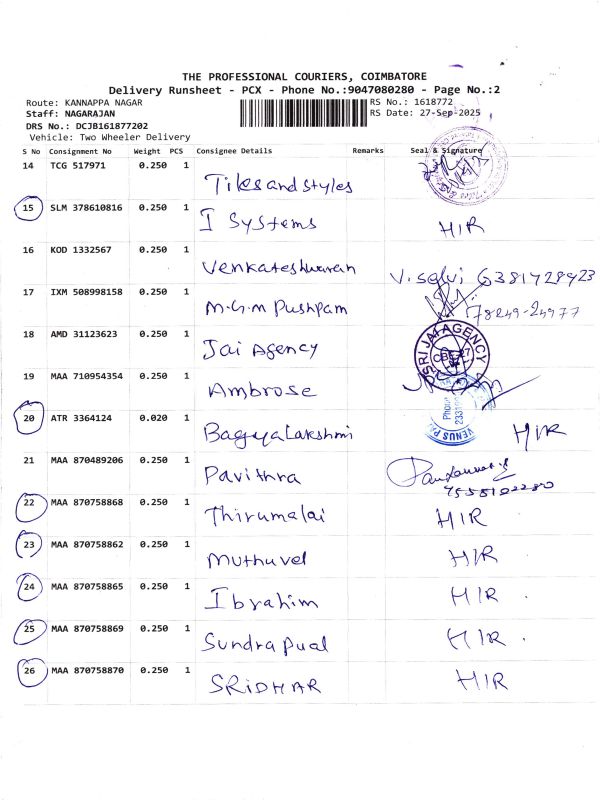 THE PROFESSIONAL COURIERS, COIMBATORE
Delivery Runsheet - PCX - Phone No.:9047080280 - Page No.:2
Route: KANNAPPA NAGAR RS No.: 1618772
Staff: NAGARAJAN RS Date: 27-Sep-2025
DRS No.: DCJB161877202
Vehicle: Two Wheeler Delivery
S No Consignment No Weight PCS Consignee Details Remarks Seal & Signature
14 TCG 517971 0.250 1 Tiles and styles
15 SLM 378610816 0.250 1 I Systems HIR
16 KOD 1332567 0.250 1 Venkateshwaran V. selvi 6381728423
17 IXM 508998158 0.250 1 M.G.M Pushpam 78249-24977
18 AMD 31123623 0.250 1 Jai Agency SRI JAI AGENCY
19 MAA 710954354 0.250 1 Ambrose
20 ATR 3364124 0.020 1 Bagyalakshmi VENUS HIR
21 MAA 870489206 0.250 1 Pavithra
22 MAA 870758868 0.250 1 Thirumalai HIR
23 MAA 870758862 0.250 1 Muthuvel HIR
24 MAA 870758865 0.250 1 Ibrahim HIR.
25 MAA 870758869 0.250 1 Sundrapual HIR.
26 MAA 870758870 0.250 1 SRIDHAR HIR